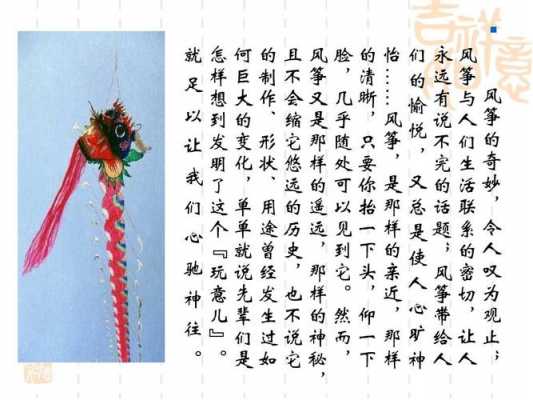 吉祥意
风筝的奇妙，令人叹为观止；
风筝与人们生活联系的密切，让人
永远有说不完的话题；风筝带给人
们的愉悦，又总是使人心旷神
怡……风筝，是那样的亲近，那样
的清晰，只要你抬一下头，仰一下
脸，几乎随处可以见到它。然而，
风筝又是那样的遥远，那样的神秘，
且不会缩它悠远的历史，也不说它
的制作、形状、用途曾经发生过如
何巨大的变化，单单就说先辈们是
怎样想到发明了这个『玩意儿』。
就足以让我们心驰神往。